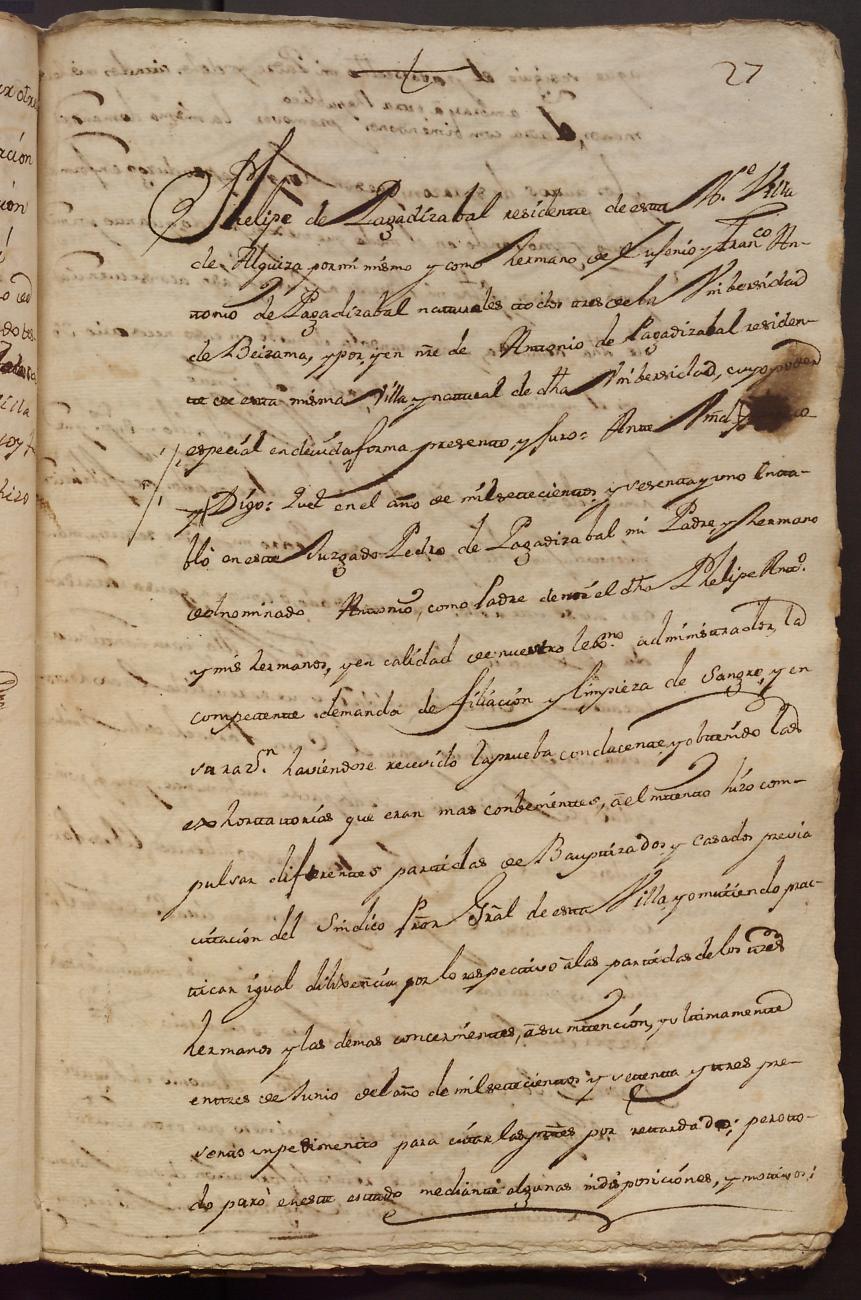 27
Phelipe de Lagadizabal residente de esta N.e Villa
de Alquiza por mi mismo y como hermano de Eusenio y Fran.co An-
tonio de Lagadizabal naturales todos tres de la Vnibersidad
de Beizama, y por, y en nre de Antonio de Lagadizabal residen-
te de esta misma Villa y natural de dha Vnibersidad, cuyo poder
especial en devida forma presento, y juro: Ante Vmd
y Digo: Que en el año de mil setecientos y sesenta y uno enta-
bló en este Juzgado Pedro de Lagadizabal mi Padre, y hermano
del nominado Antonio, como Padre de mi el dho Phelipe Ant.o
y mis hermanos, y en calidad de nuestro lex.mo administrador, la
competente demanda de filiación y limpieza de sangre, y en
su raz.n haviendose recevido la prueba conducente, y obtenido las
exhortatorias que eran mas conbenientes, a el intento hizo com-
pulsar diferentes partidas de Bauptizados y casados previa
citación del Sindico Pror Gral de esta Villa, y omitiendo prac-
ticar igual dilixencia por lo respectivo a las partidas de los tres
hermanos y las demas concernientes, a su intención, y vltimamente
en tres de Junio del año de mil setecientos y setenta y tres pre-
sentó inpedimento para citar las partes por retardado; pero to-
do paró en este estado mediante algunas indisposiciones, y motivos;